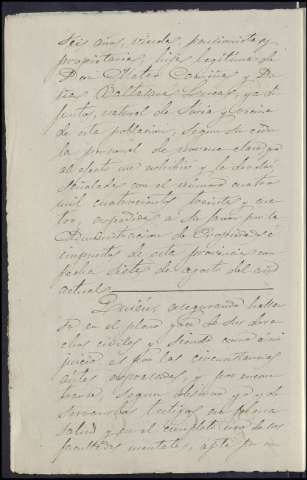 seis años, viuda, pensionista y
propietaria, hija legítima de
Don Mateo y Do
ña Baltasara ya di
funtos, natural de Soria y vecina
de esta población, según su cédu
la personal de novena clase que
al efecto me exhibe y le devuelvo,
señalada con el número cuatro
mil cuatrocientos treinta y cua
tro, expedida a su favor por la
Administración de Propiedades é
impuestos de esta provincia con
fecha siete de agosto del año
actual.
Quién, asegurando hallar
se en el pleno goce de sus dere
chos civiles y siendo como á mi
juicio es por las circunstancias
antes expresadas, y por encon
trarse, segun observo yo y ob
servan los testigos en buena
salud y en el completo uso de sus
facultades mentales, apta por